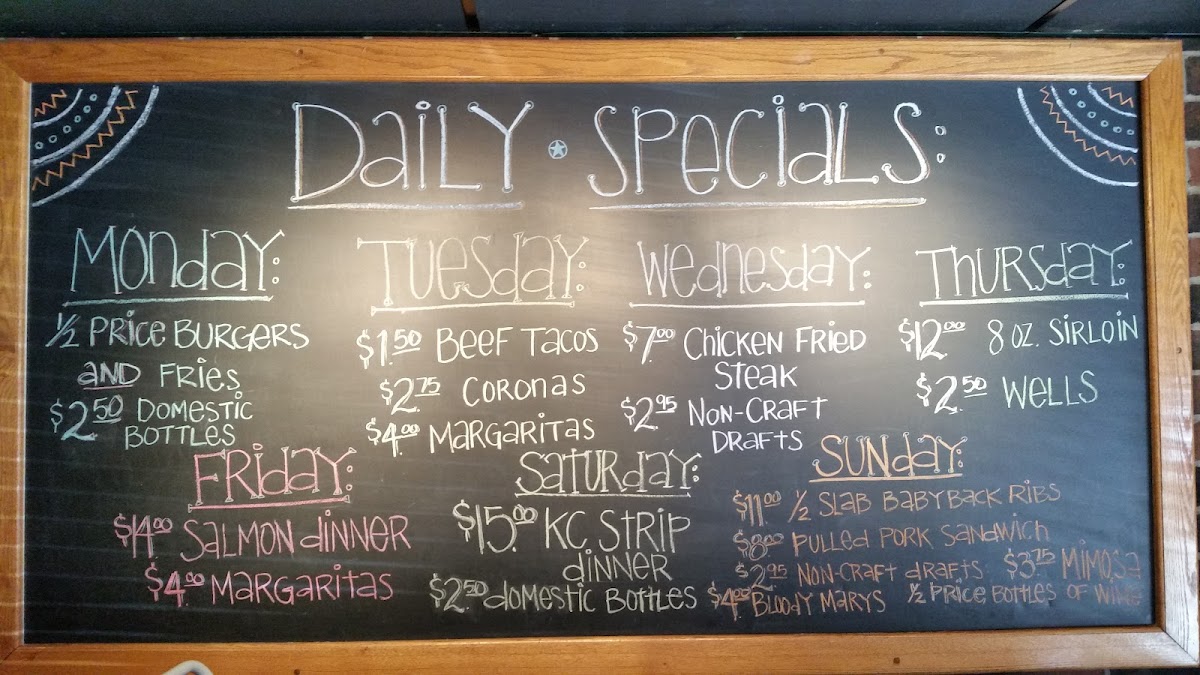 Daily Specials:
Monday:
1/2 Price Burgers
and Fries
$2.50 Domestic
Bottles
Tuesday:
$1.50 Beef Tacos
$2.75 Coronas
$4.00 Margaritas
Wednesday:
$7.00 Chicken Fried
Steak
$2.95 Non-Craft
Drafts
Thursday:
$12.00 8 oz. Sirloin
$2.50 Wells
Friday:
$14.00 Salmon Dinner
$4.00 Margaritas
Saturday:
$15.00 KC Strip
Dinner
$2.50 Domestic Bottles
Sunday:
$11.00 1/2 Slab Baby Back Ribs
$8.00 Pulled Pork Sandwich
$2.95 Non-Craft Drafts $3.75 Mimosa
$4.00 Bloody Marys 1/2 Price Bottles of Wine